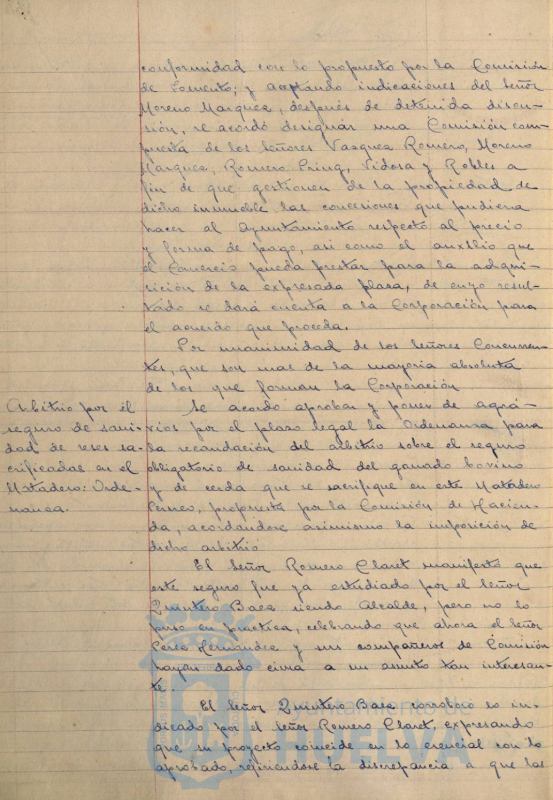 conformidad con lo propuesto por la Comisión
de Fomento; y aceptando indicaciones del Señor
Moreno Marquez, después de detenida discu-
sión, se acordó designar una Comisión com-
puesta de los Señores Vazquez Romero, Moreno
Marquez, Romero Pring, Vidosa y Robles a
fin de que gestionen de la propiedad de
dicho inmueble las concesiones que pudiera
hacer al Ayuntamiento respecto al precio
y forma de pago, asi como el auxilio que
el Comercio pueda prestar para la adqui-
sición de la expresada plaza, de cuyo resul-
tado se dará cuenta a la Corporación para
el acuerdo que proceda.
Por unanimidad de los Señores Concurren-
tes, que son mas de la mayoria absoluta
de los que forman la Corporación
Arbitrio por el
seguro de sani-
dad de reses sa-
crificadas en el
Matadero: Orde-
nanza.
Se acordo aprobar y poner de agra-
vios por el plazo legal la Ordenanza para
la recaudación del arbitrio sobre el seguro
obligatorio de sanidad del ganado bovino
y de cerda que se sacrifique en este Matadero
Cerneo, propuesta por la Comisión de Hacien-
da, acordandose asimismo la imposición de
dicho arbitrio
El Señor Romero Claret manifestó que
este seguro fue ya estudiado por el Señor
Quintero Baez siendo Alcalde, pero no lo
puso en practica, celebrando que ahora el Señor
Perez Hernandez y sus compañeros de Comisión
hayan dado cima a un asunto tan interesan-
te.
El Señor Quintero Baez corroboró lo in-
dicado por el Señor Romero Claret, expresando
que su proyecto coincide en lo esencial con lo
aprobado, refiriendose la discrepancia a que las
Ayuntamiento de
HUELVA